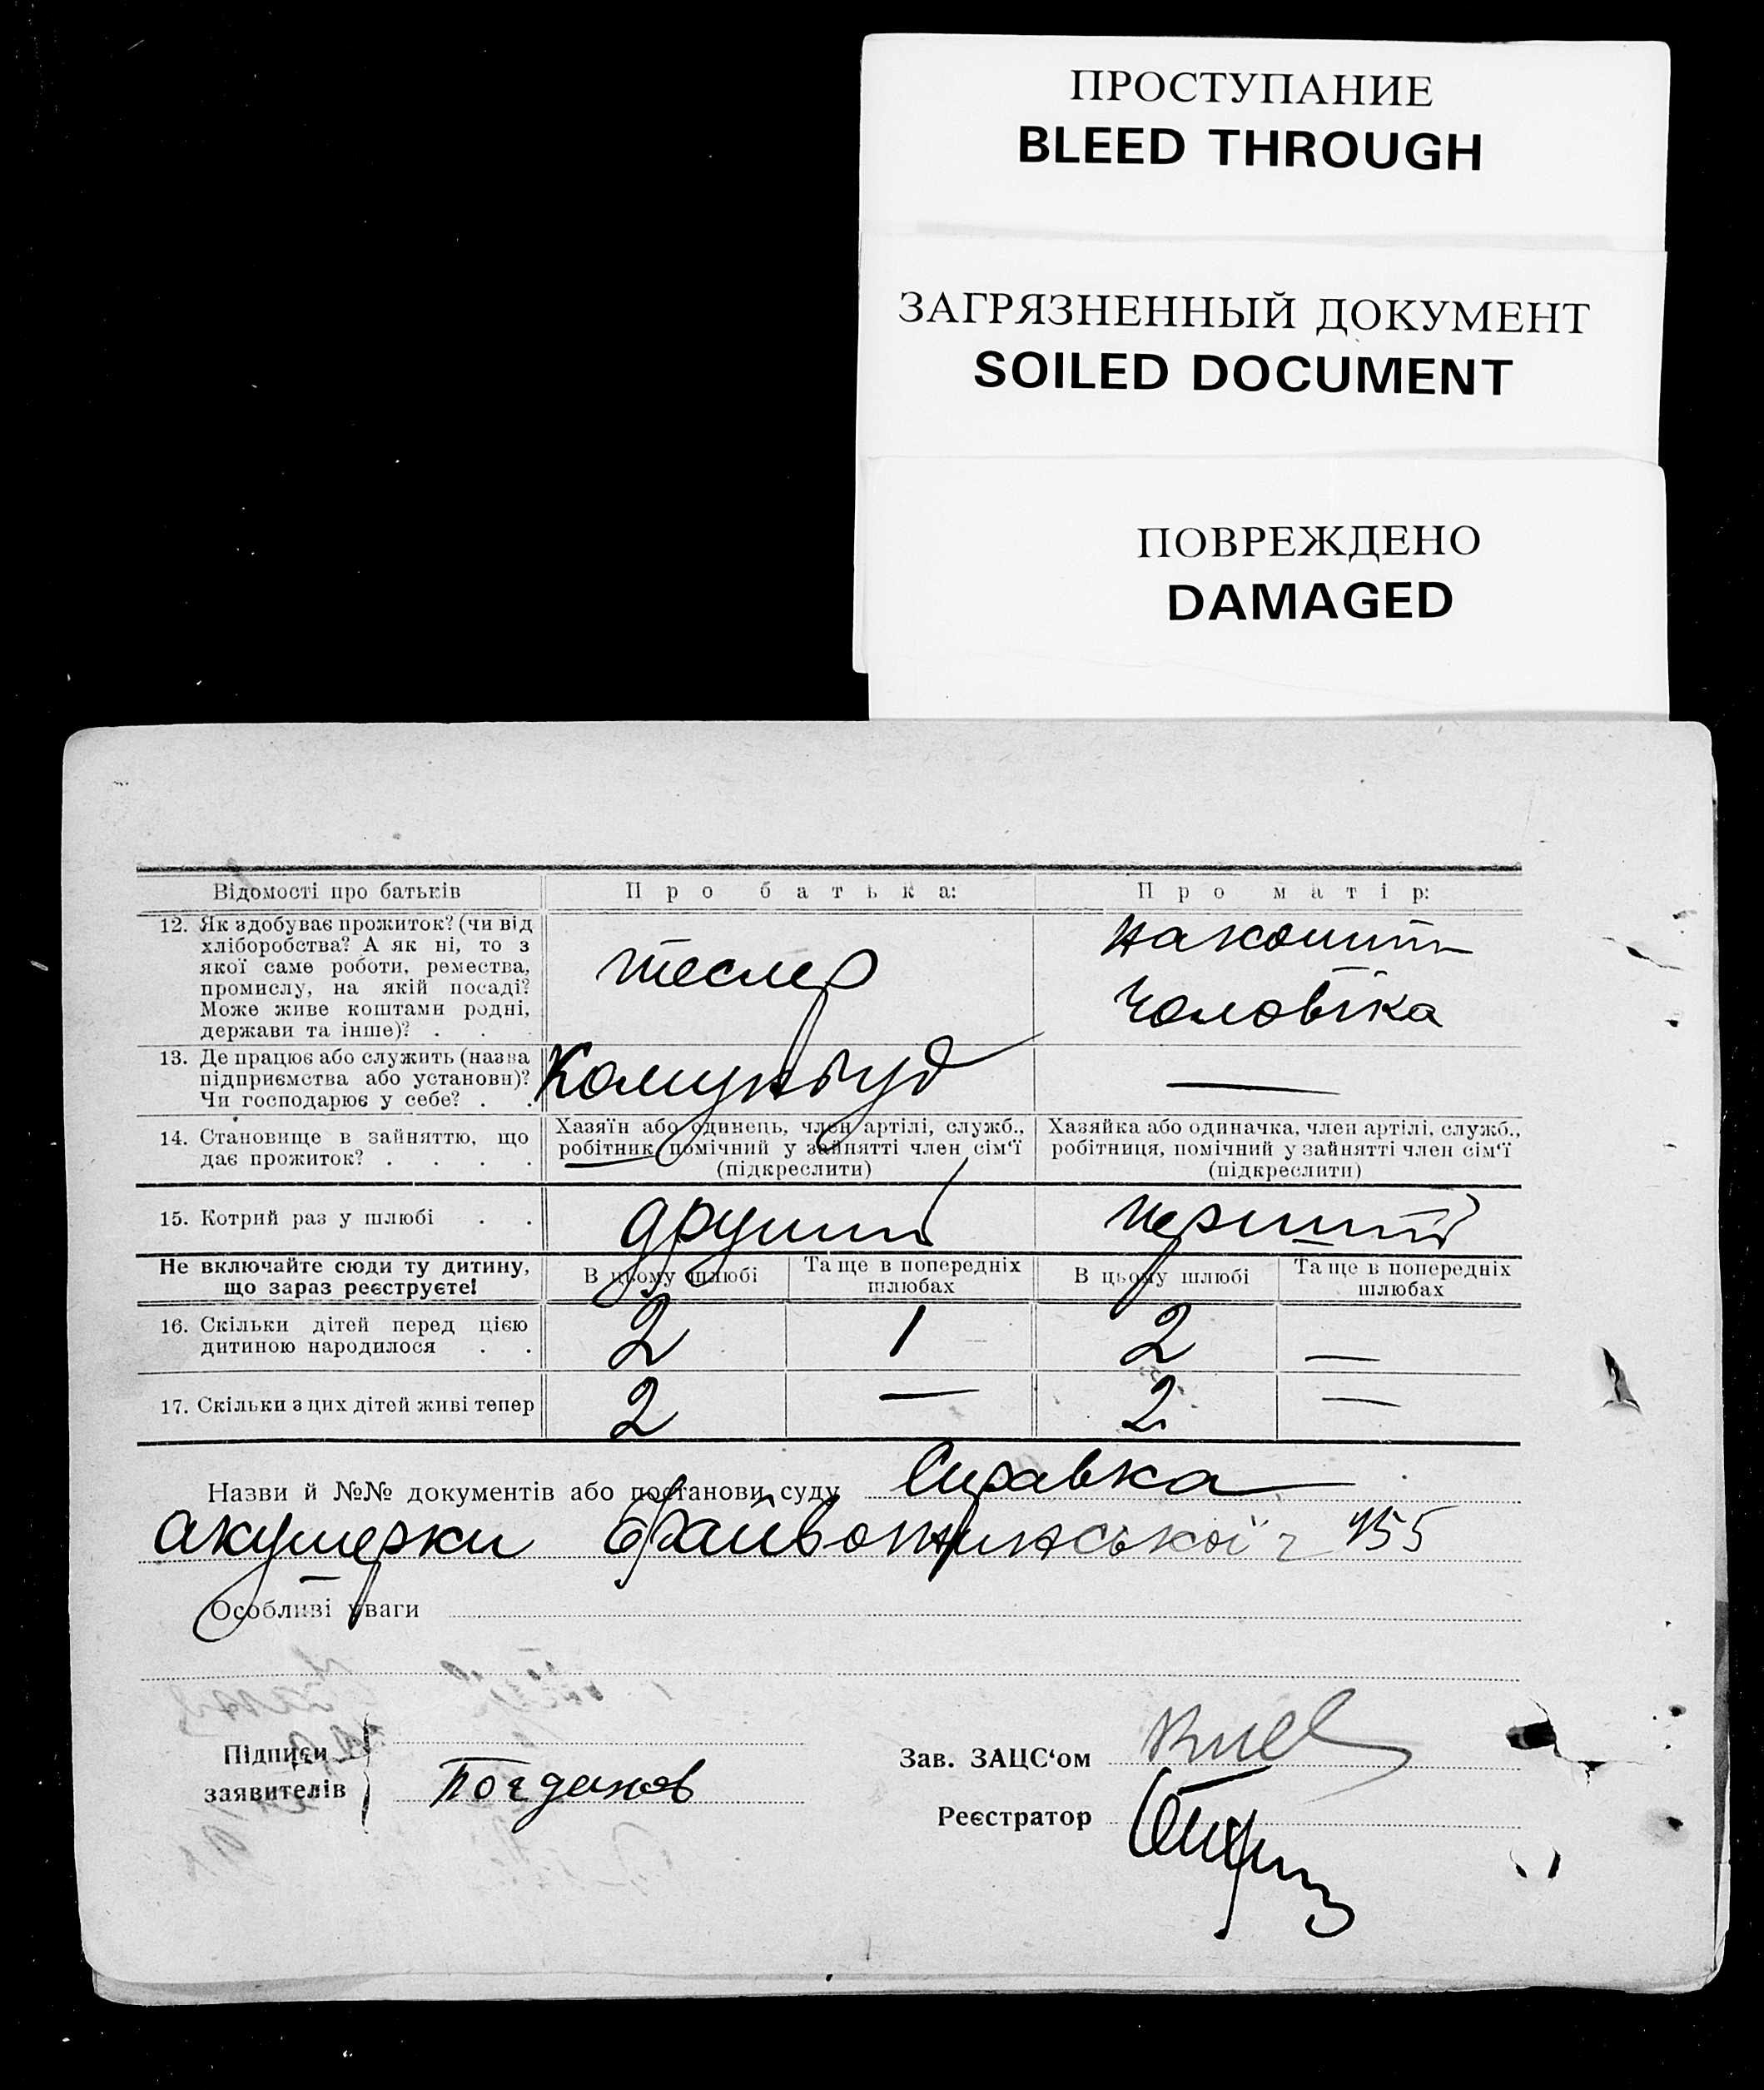 ПРОСТУПАНИЕ
BLEED THROUGH
ЗАГРЯЗНЕННЫЙ ДОКУМЕНТ
SOILED DOCUMENT
ПОВРЕЖДЕНО
DAMAGED
Відомості про батьків
Про батька:
Про матір:
12. Як здобуває прожиток? (чи від
хліборобства? А як ні, то з
якої саме роботи, ремества,
промислу, на якій посаді?
Може живе коштами родні,
держави та інше)? . . .
тесляр
на кошти
чоловіка
13. Де працює або служить (назва
підприємства або установи)?
Чи господарює у себе? . .
Комунбуд
—
14. Становище в зайняттю, що
дає прожиток? . . . .
Хазяїн або одинець, член артілі, служб.,
робітник, помічний у зайнятті член сім'ї
(підкреслити)
Хазяйка або одиначка, член артілі, служб.,
робітниця, помічний у зайнятті член сім'ї
(підкреслити)
15. Котрий раз у шлюбі . .
другий
перший
Не включайте сюди ту дитину,
що зараз реєструєте!
В цьому шлюбі
Та ще в попередніх
шлюбах
В цьому шлюбі
Та ще в попередніх
шлюбах
16. Скільки дітей перед цією
дитиною народилося . .
2 1 2 —
17. Скільки з цих дітей живі тепер
2 — 2 —
Назви й №№ документів або постанови суду Справка
акушерки 155
Особливі уваги
Підписи
заявителів
Богданов
Зав. ЗАЦС'ом
Реєстратор